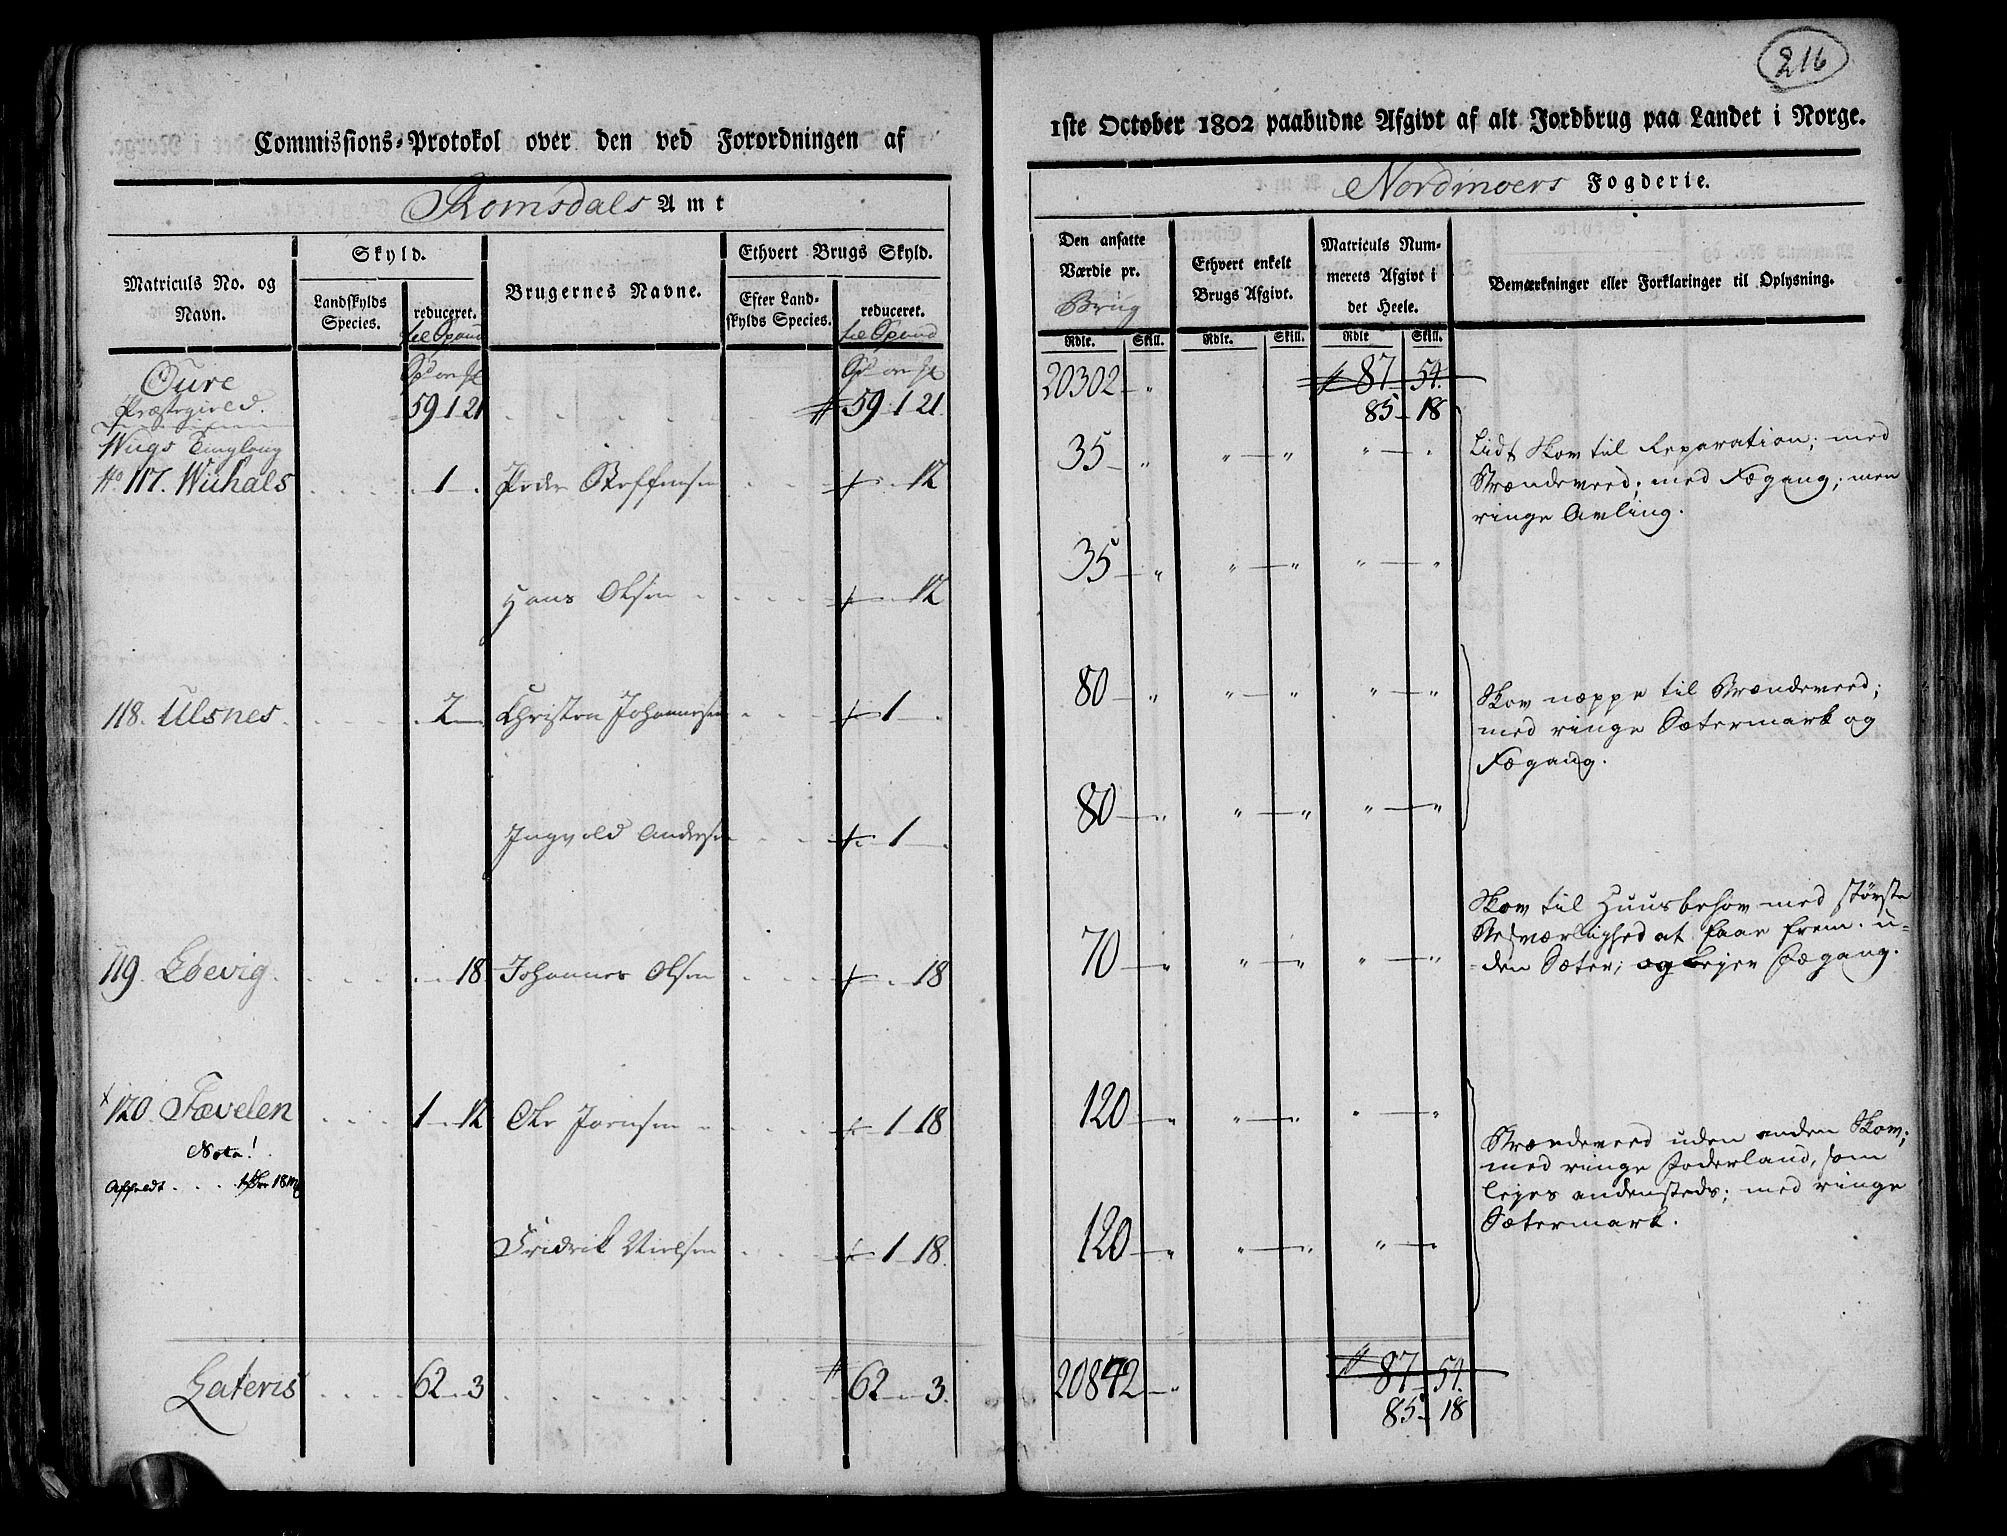 216
Commissions-Protokol over den ved Forordningen af
1ste October 1802 paabudne Afgivt af alt Jordbrug paa Landet i Norge.
Romsdals Amt
Nordmoers Fogderie.
Matriculs No. og Navn.
Skyld.
Landskylds Species.
reduceret.
til Spand
Brugernes Navne.
Ethvert Brugs Skyld.
Efter Landskylds Species.
reduceret.
til Spand
Den ansatte Værdie pr.
Brug
Ethvert enkelt Brugs Afgivt.
Matriculs Nummerets Afgivt i det Heele.
Bemærkninger eller Forklaringer til Oplysning.
Rdlr. Skill. Rdlr. Skill. Rdlr. Skill.
Oure
Præstegield. 59 1 21 59 1 21. 20302 „ 87 54.
85 18
Tinglaug
No 117. Wiihals 1 Peder Steffensen 12 35 „ „ „ „ „
Lidt Skov til Reparation; med
Brændeveed; med Fægang; men
ringe Avling.
Hans Olsen 12 35 „ „ „ „ „
118. Ulsnes. 2 Christen Johannesen 1 80 „ „ „ „ „
Skov næppe til Brændeveed;
med ringe Sætermark og
Fægang.
Ingvold Andersen 1 80 „ „ „ „ „
119 Løevig 18 Johannes Olsen 18 70 „ „ „ „ „
Skov til Huusbehov med største
Besværlighed at faae frem. u-
den Sæter; og lejer Fægang.
120. Fævelen 1 12 Ole Joensen 1 18 120 „ „ „ „ „
Nota!
Affældt
Brændeveed uden anden Skov;
med ringe Foderland, som
lejes andensteds; med ringe
Sætermark.
Fridrik Nielsen 1 18. 120 „ „ „ „ „
Lateris 62 3 62 3. 20842 „ 87 54.
85 18